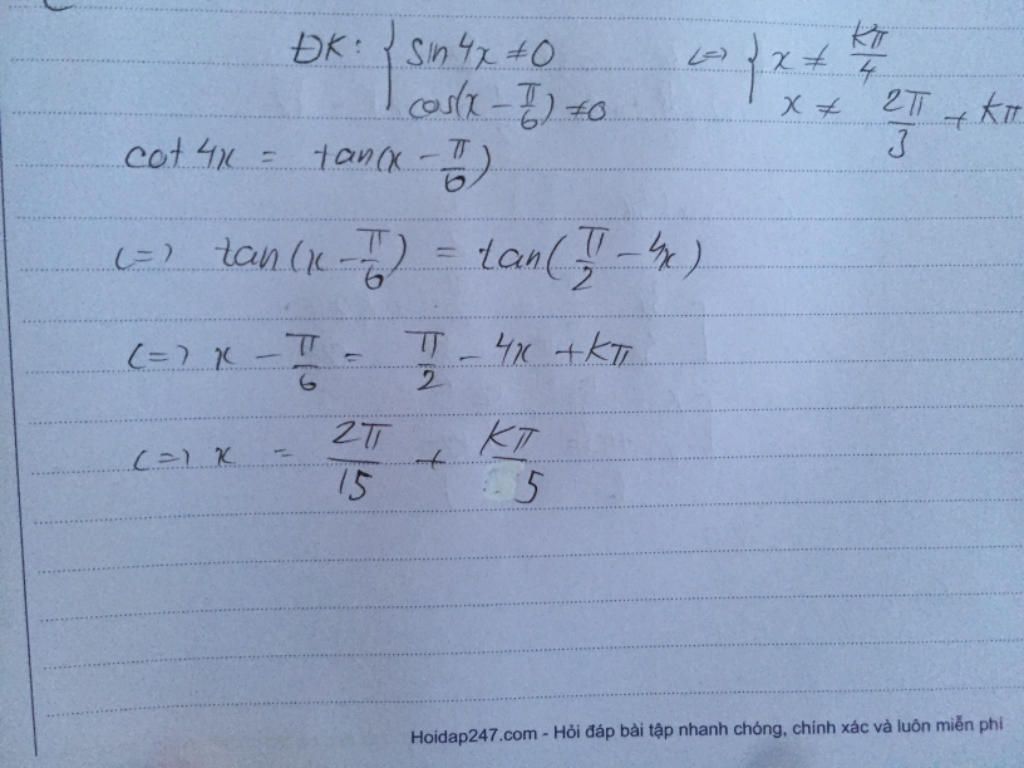 ĐK: { sin4x ≠ 0 <=> { x ≠ kπ/4
cos(x - π/6) ≠ 0 x ≠ 2π/3 + kπ
cot 4x = tan(x - π/6)
<=> tan(x - π/6) = tan(π/2 - 4x)
<=> x - π/6 = π/2 - 4x + kπ
<=> x = 2π/15 + kπ/5
Hoidap247.com - Hỏi đáp bài tập nhanh chóng, chính xác và luôn miễn phí